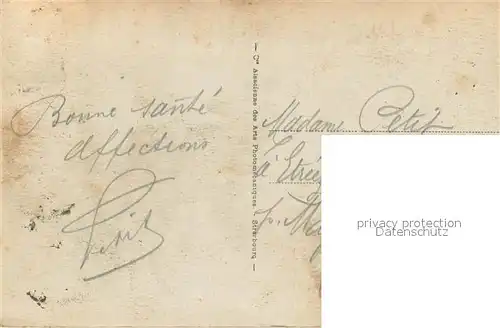 Bonne santé
affections
Petit
— Cie Alsacienne des Arts Photomécaniques, Strasbourg —
Madame Petit
à
privacy protection
Datenschutz